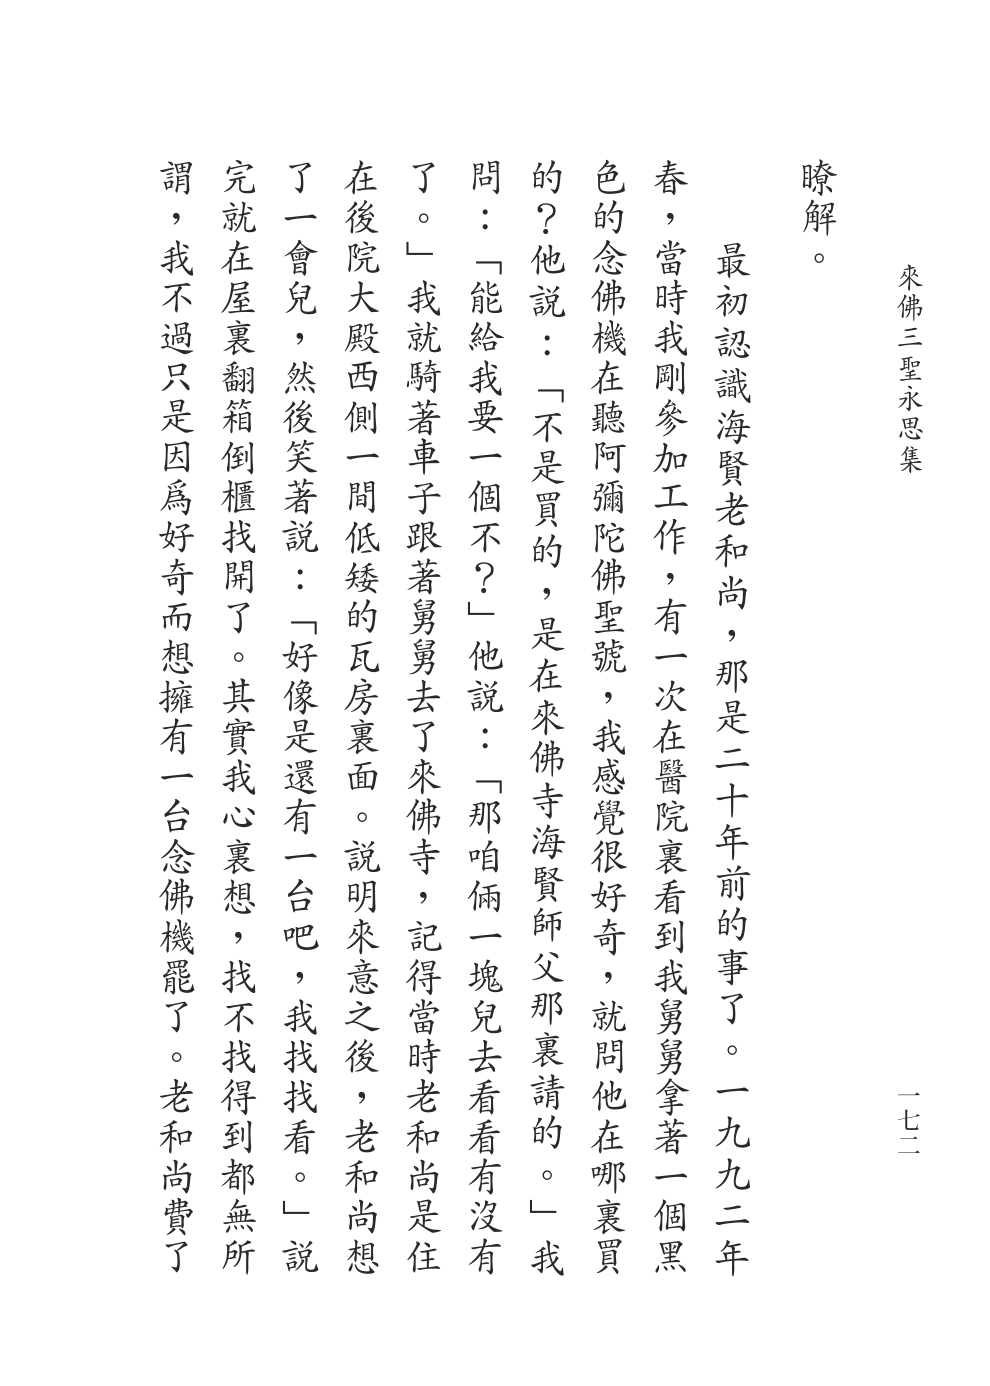 來佛三聖永思集
一七二
瞭解。
最初認識海賢老和尚，那是二十年前的事了。一九九二年
春，當時我剛參加工作，有一次在醫院裏看到我舅舅拿著一個黑
色的念佛機在聽阿彌陀佛聖號，我感覺很好奇，就問他在哪裏買
的？他説：「不是買的，是在來佛寺海賢師父那裏請的。」我
問：「能給我要一個不？」他説：「那咱倆一塊兒去看看有沒有
了。」我就騎著車子跟著舅舅去了來佛寺，記得當時老和尚是住
在後院大殿西側一間低矮的瓦房裏面。説明來意之後，老和尚想
了一會兒，然後笑著説：「好像是還有一台吧，我找找看。」説
完就在屋裏翻箱倒櫃找開了。其實我心裏想，找不找得到都無所
謂，我不過只是因爲好奇而想擁有一台念佛機罷了。老和尚費了